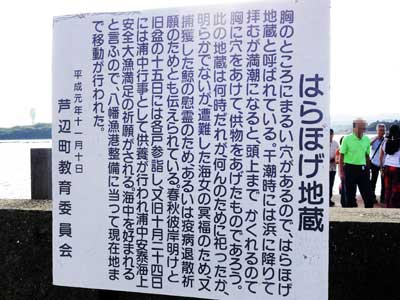 はらほげ地蔵
胸のところにまるい穴があるので、はらほげ
地蔵と呼ばれている。干潮時には浜に降りて
拝むが満潮になると、頭上までかくれるので
胸に穴をあけて、供物をあげたものであろう。
此の地蔵は何時だれが、何んのために祀ったか、
明らかでないが、遭難した海女の冥福のため、又
捕獲した鯨の慰霊のため、あるいは疫病退散祈
願のためとも伝えられている。春秋彼岸明けと
旧盆の十五日には各自参詣し、又旧十月二十四日
には浦中行事として供養が行われ浦中安泰海上
安全大漁満足の祈願がされる。海中を好まれる
と言うので、八幡漁港整備に当って現在地ま
で移動が行われた。
平成元年十一月十日
芦辺町教育委員会